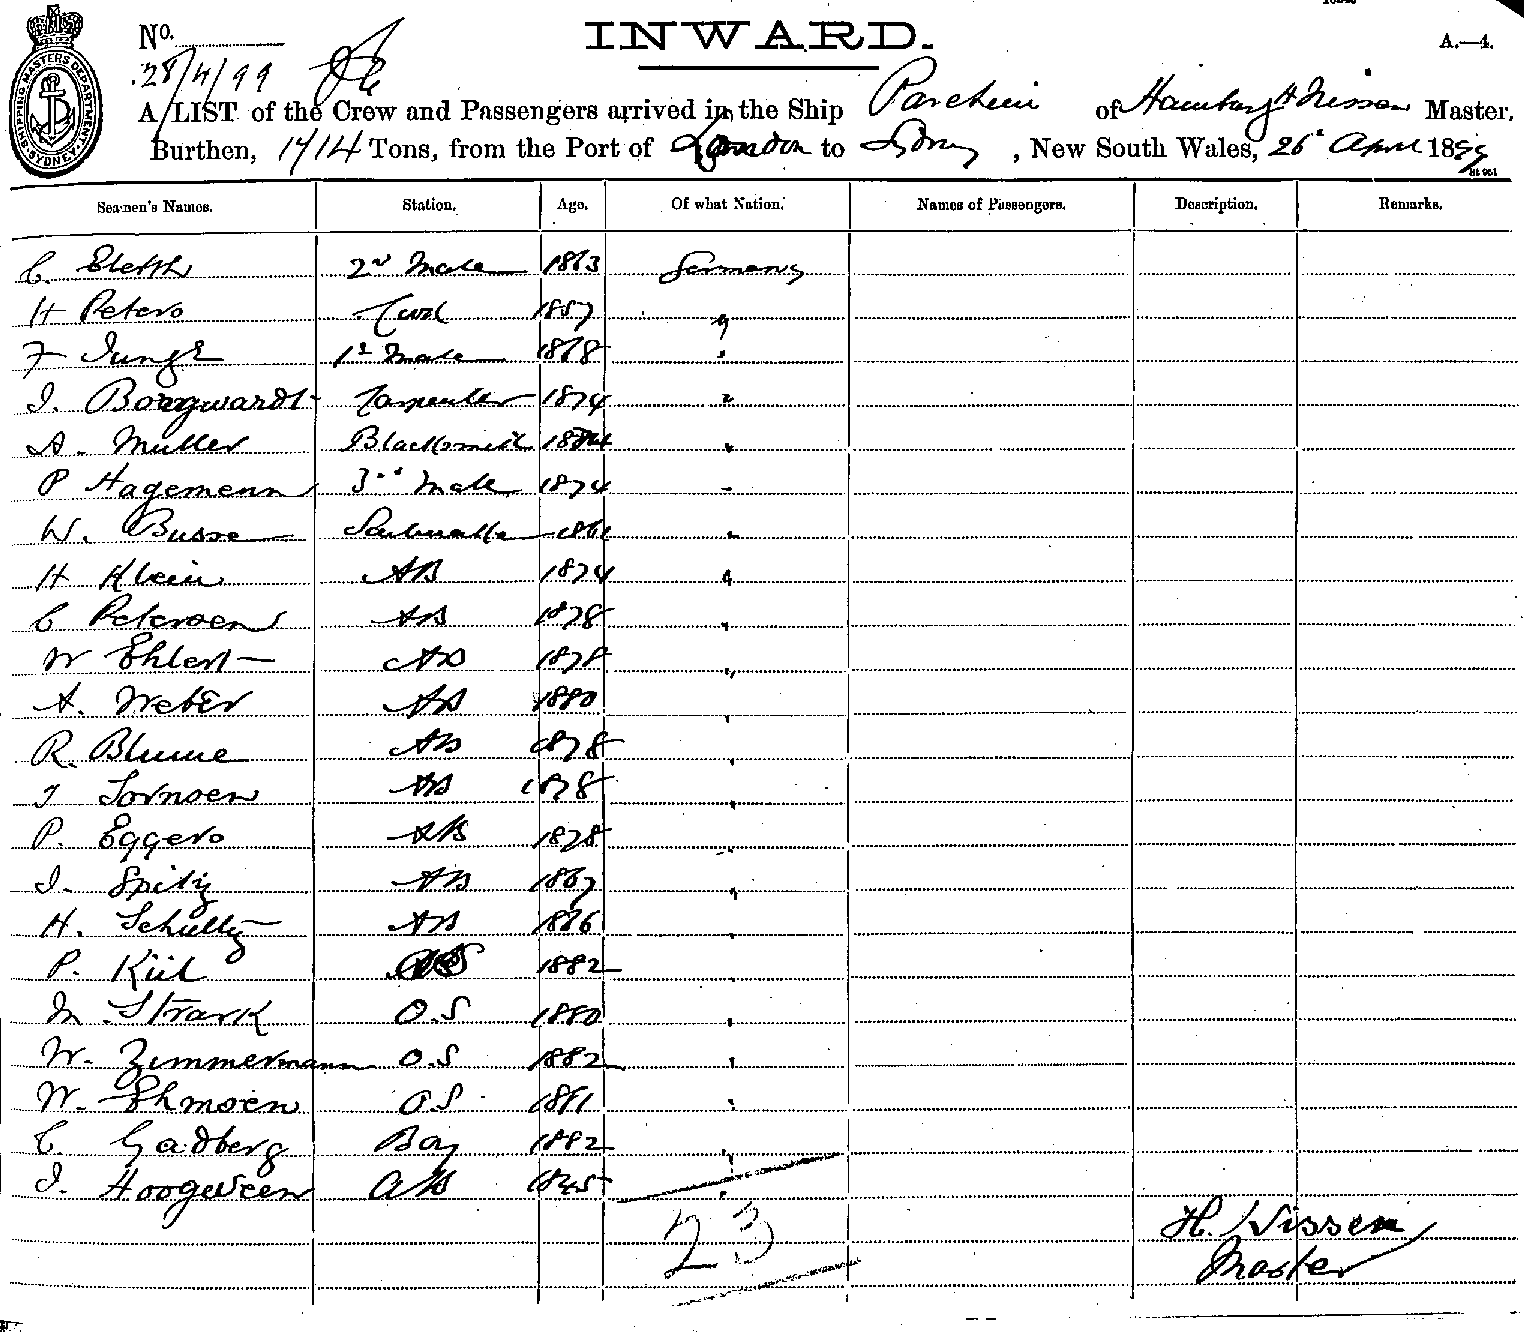 No.
INWARD.
A.—4.
28/4/99
SHIPPING MASTERS DEPARTMENT SYDNEY
A LIST of the Crew and Passengers arrived in the Ship Parchim of Hamburg H Nissen Master.
Burthen, 1714 Tons, from the Port of London to Sydney, New South Wales, 26 April 1899
Seamen's Names. Station. Age. Of what Nation. Names of Passengers. Description. Remarks.
C. 2nd Mate 1863 Germany
H Peters 1857 "
F Jungk 1st Mate 1868 "
J. Borgwardt Carpenter 1874 "
A. Muller Blacksmith "
P Hagemann 3rd Mate 1874 "
W. Busse Sailmaker 1861 "
H Klein AB 1874 "
C Petersen AB 1878 "
W Ehlert AB 1878 "
A. Weber AB 1880 "
R. Blume AB 1878 "
J Sornsen AB 1878 "
P. Eggers AB 1878 "
J. Spitz AB 1867 "
H. Schultz AB 1876 "
P. Kiil 1882 "
M Strark O.S 1880 "
W. Zimmermann O.S 1882 "
W. Ehmsen O.S 1881 "
C. Gadberg Boy 1882 "
J. Hoogeveen AB 1845 "
23
H. Nissen
Master